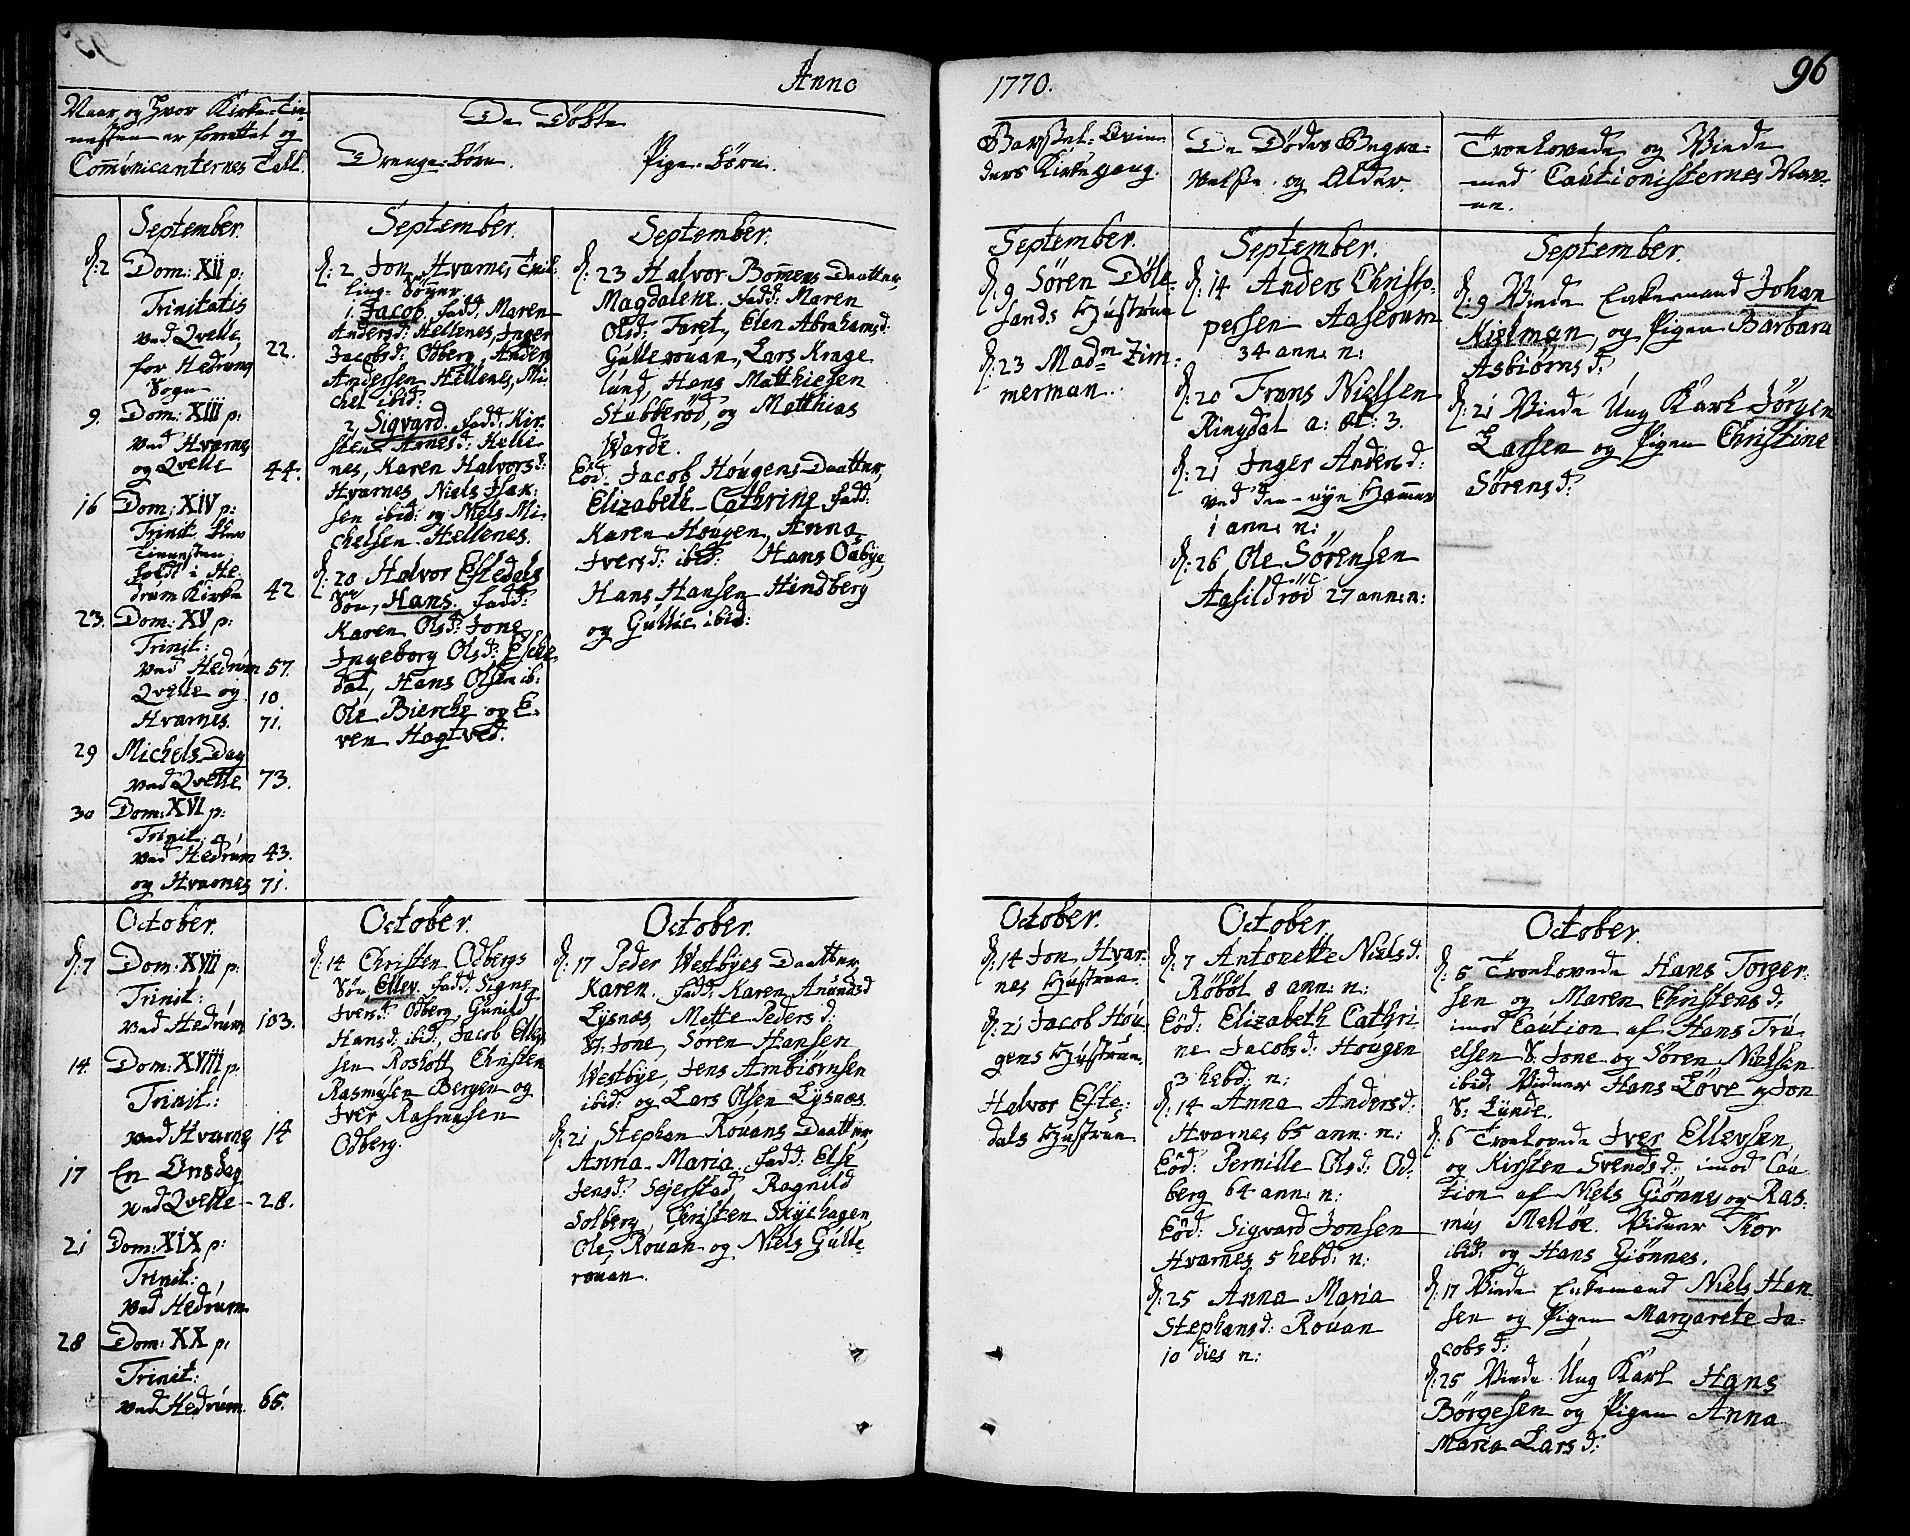 Anno
1770.
96
Naar og hvor Kirke-Tie-
nesten er forrettet og
Com̄unicanternes Tall.
De Döbte
Drenge-börn.
Pige-börn.
Barsel-Qvin-
ders Kirkegang.
De Dödes Begra-
velse og Alder.
Troelovede og Viede
med Cautionisternes Nav-
ne.
September.
d: 2 Dom: XII p:
Trinitatis
ved Qvelle
for Hedrums
Sogn 22.
9. Dom: XIII p:
ved Hvarnes
og Qvelle 44.
16 Dom: XIV p:
Trinit.
Tienesten
holdt i He-
drum Kirke 42.
23. Dom: XV p:
Trinit:
ved Hedrum 57.
Qvelle og 10.
Hvarnes. 71.
29 Michels Dag
ved Qvelle 73.
30 Dom: XVI p:
Trinit.
ved Hedrum 43.
og Hvarnes 71.
September.
d: 2 Jon Hvarnes Tvil-
ling-Sönner
1. Jacob. fadd: Maren
Andersd: Hellenes, Inger
Jacobsd: Odberg, Anders
Andersen Hellenes, Mi-
chel ibid:
2, Sigvard. fadd: Kir-
sten Annesd: Helle
nes, Karen Halvorsd:
Hvarnes, Niels Isak-
sen ibid: og Niels Mi-
chelsen Hellenes.
d: 20 Halvor Eftedals
Sön, Hans. fadd:
Karen Olsd: Jone
Ingeborg Olsd: Efte-
dal, Hans Olsen ib:
Ole Bierche og E-
ven Hagtved.
September.
d: 23 Halvor Bom̄ens Daatter,
Magdalene. fadd: Maren
Olsd: Faret, Elen Abrahamsd:
Gullerouan, Lars Krage
lund, Hans Matthiesen
Stubberöd, og Matthias
Warde.
Eod: Jacob Hougens Daatter,
Elizabeth-Cathrine, fadd:
Karen Hougen, Anna
Iversd: ibid: Hans Oubye,
Hans Hansen Hindberg
og Gullic ibid:
September.
d: 9 Sören Döle-
sands Hustrue
d: 23 Madm Zim-
merman.
September.
d: 14 Anders Christo-
persen Aaserum
34 ann: n:
d: 20 Frans Nielsen
Ringdal a: æt: 3.
d: 21 Inger Andersd:
ved den nye Ham̄er
1 ann: n:
d: 26, Ole Sörensen
Aasildröd 27 ann: n:
September.
d: 9 Viede Enkemand Johan
Kielman, og Pigen Barbara
Asbiörnsd:
d: 21 Viede Ung Karl Jörgen
Larsen og Pigen Christine
Sörensd:
October.
d: 7 Dom: XVII p:
Trinit:
ved Hedrum 103.
14 Dom: XVIII p:
Trinit:
ved Hvarnes 14
17 En Onsdag
ved Qvelle 28.
21 Dom: XIX p:
Trinit:
ved Hedrum
28 Dom: XX p:
Trinit:
ved Hedrum. 65.
October.
d: 14 Christen Odbergs
Sön Ellev. fadd: Signe
Iversd: Odberg, Gunild
Hansd: ibid, Jacob Ellev-
sen Rosholt, Christen
Rasmusen Bergen og
Iver Rasmusen
Odberg.
October.
d: 17 Peder Westbyes Daatter,
Karen. fadd: Karen Anundsd
Lysnæs, Mette Pedersd:
S: Jone, Sören Hansen
Westbye, Jens Ambiörnsen
ibid: og Lars Olsen Lysnæs.
d: 21, Stephan Rouans Daatter,
Anna Maria. fadd: Else
Jensd: Sejerstad, Ragnild
Solberg, Christen Skyehagen,
Ole Rouan og Niels Gulle-
rouan.
October.
d: 14 Jon Hvar-
nes Hustrue.
d: 21 Jacob Hou-
gens Hustrue.
Halvor Efte-
dals Hustrue
October.
d: 7 Antonette Nielsd:
Röböl 8 ann: n:
Eod: Elizabeth Cathri
ne Jacobsd: Hougen
3 hebd: n:
d: 14 Anna Andersd:
Hvarnes 65 ann: n:
Eod: Pernille Olsd: Od-
berg 64 ann: n:
Eod: Sigvard Jonsen
Hvarnes 5 hebd: n:
d: 25 Anna Maria
Stephansd: Rouan
10 dies n:
October.
d: 5 Troelovede Hans Torger-
sen og Maren Christensd:
imod Caution af Hans Tru
elsen S. Jone og Sören Nielsen
ibid. Vidner Hans Löve og Jon
S: Lunde.
d: 6 Troelovede Iver Ellevsen
og Kirsten Svendsd: imod Cau-
tion af Niels Giönnes og Ras-
mus Meköe. Vidner Thor
ibid: og Hans Giönnes.
d: 17 Viede Enkemand Niels Han
sen og Pigen Margarete Ja-
cobsd:
d: 25 Viede Ung Karl Hans
Börgesen og Pigen Anna
Maria Larsd: